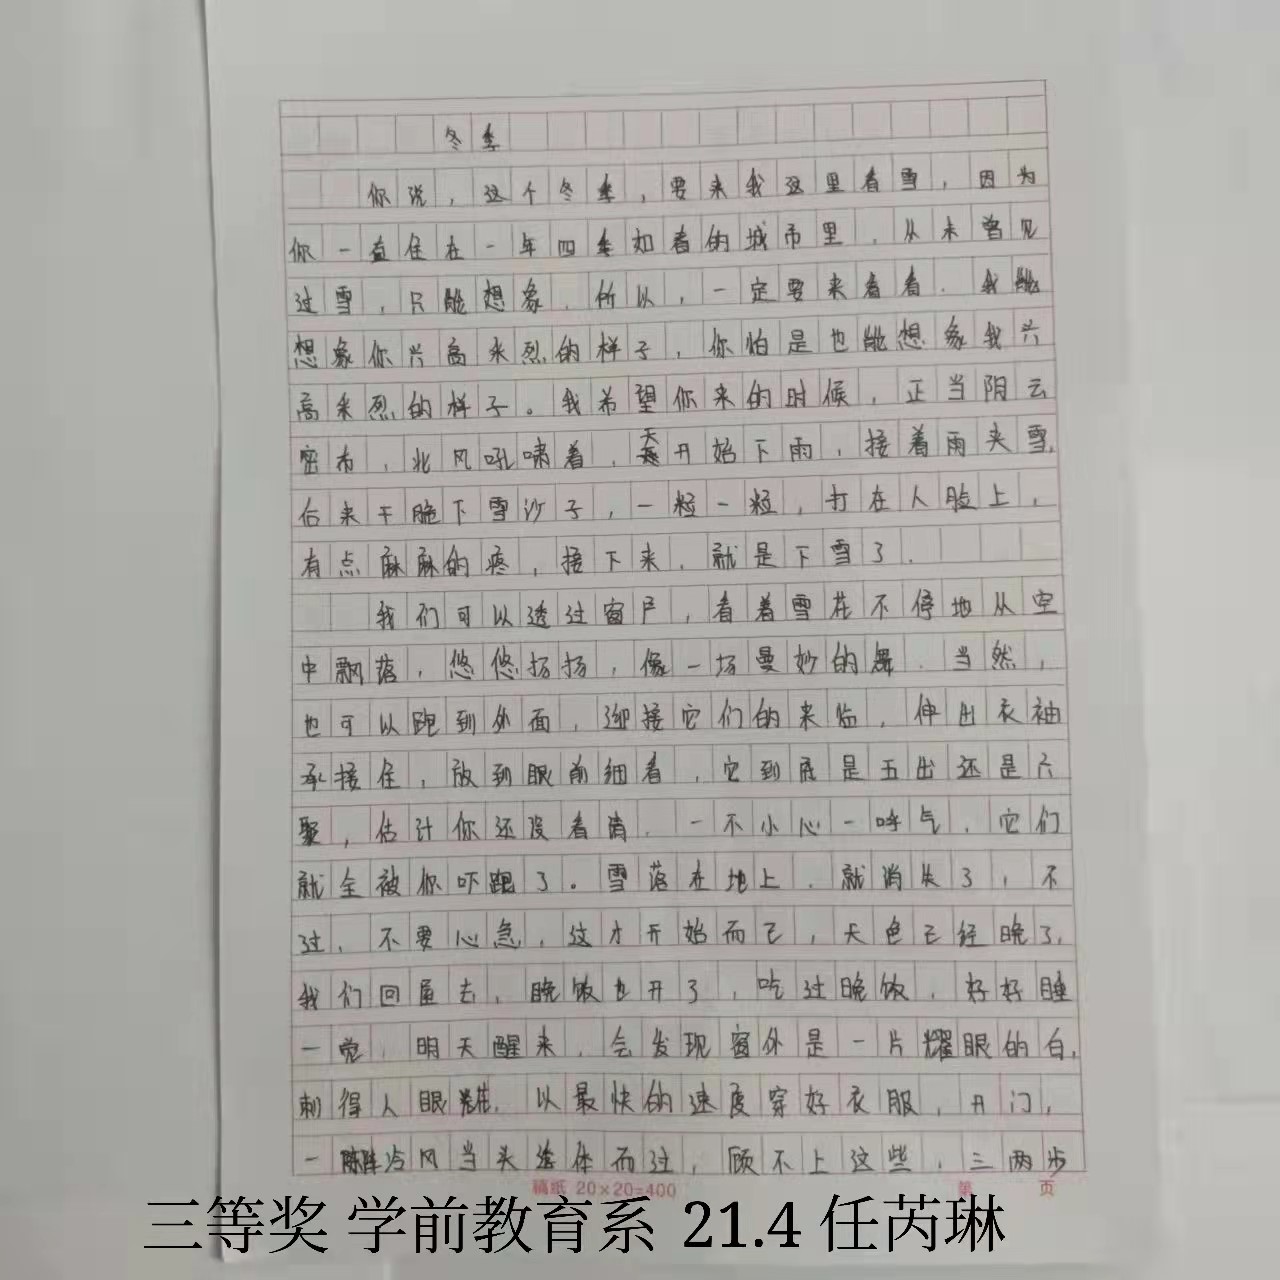 冬季
你说，这个冬季，要来我这里看雪，因为
你一直住在一年四季如春的城市里，从未曾见
过雪，只能想象，所以，一定要来看看。我能
想象你兴高来烈的样子，你怕是也能想象我兴
高采烈的样子。我希望你来的时候，正当阴云
密布，北风吼啸着，天开始下雨，接着雨夹雪，
后来干脆下雪沙子，一粒一粒，打在人脸上，
有点麻麻的疼，接下来，就是下雪了。
我们可以透过窗户，看着雪花不停地从空
中飘落，悠悠扬扬，像一场曼妙的舞。当然，
也可以跑到外面，迎接它们的来临，伸出衣袖
承接住，放到眼前细看，它到底是五出还是六
聚，估计你还没看清，一不小心一呼气，它们
就全被你吓跑了。雪落在地上，就消失了，不
过，不要心急，这才开始而已，天色已经晚了，
我们回屋去，晚饭也开了，吃过晚饭，好好睡
一觉，明天醒来，会发现窗外是一片耀眼的白，
刺得人眼花，以最快的速度穿好衣服，开门，
一阵冷风当头透体而过，顾不上这些，三两步
稿纸 20×20=400 第 页
三等奖 学前教育系 21.4 任芮琳